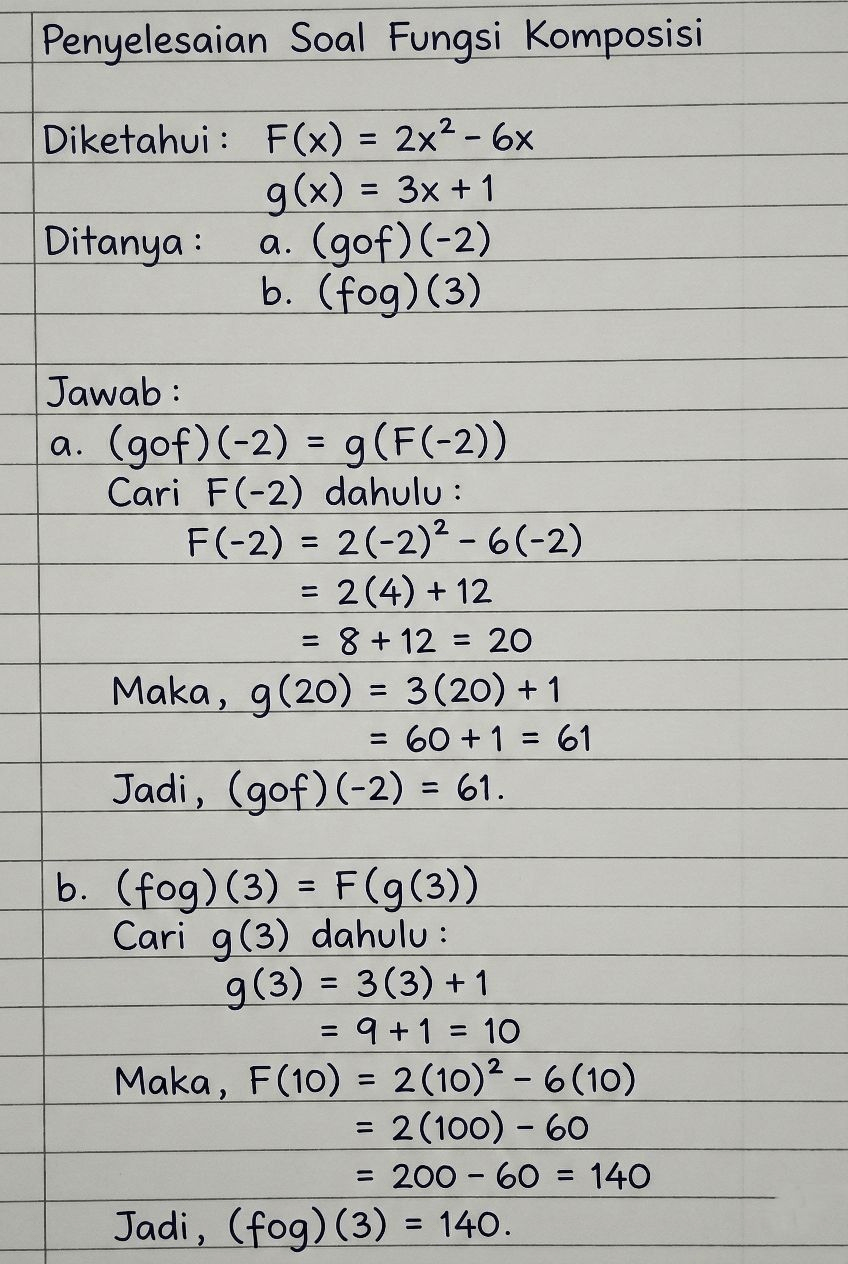 Penyelesaian Soal Fungsi Komposisi
Diketahui : F(x) = 2x² - 6x
g(x) = 3x + 1
Ditanya : a. (gof)(-2)
b. (fog)(3)
Jawab :
a. (gof)(-2) = g(F(-2))
Cari F(-2) dahulu :
F(-2) = 2(-2)² - 6(-2)
= 2(4) + 12
= 8 + 12 = 20
Maka, g(20) = 3(20) + 1
= 60 + 1 = 61
Jadi, (gof)(-2) = 61.
b. (fog)(3) = F(g(3))
Cari g(3) dahulu :
g(3) = 3(3) + 1
= 9 + 1 = 10
Maka, F(10) = 2(10)² - 6(10)
= 2(100) - 60
= 200 - 60 = 140
Jadi, (fog)(3) = 140.